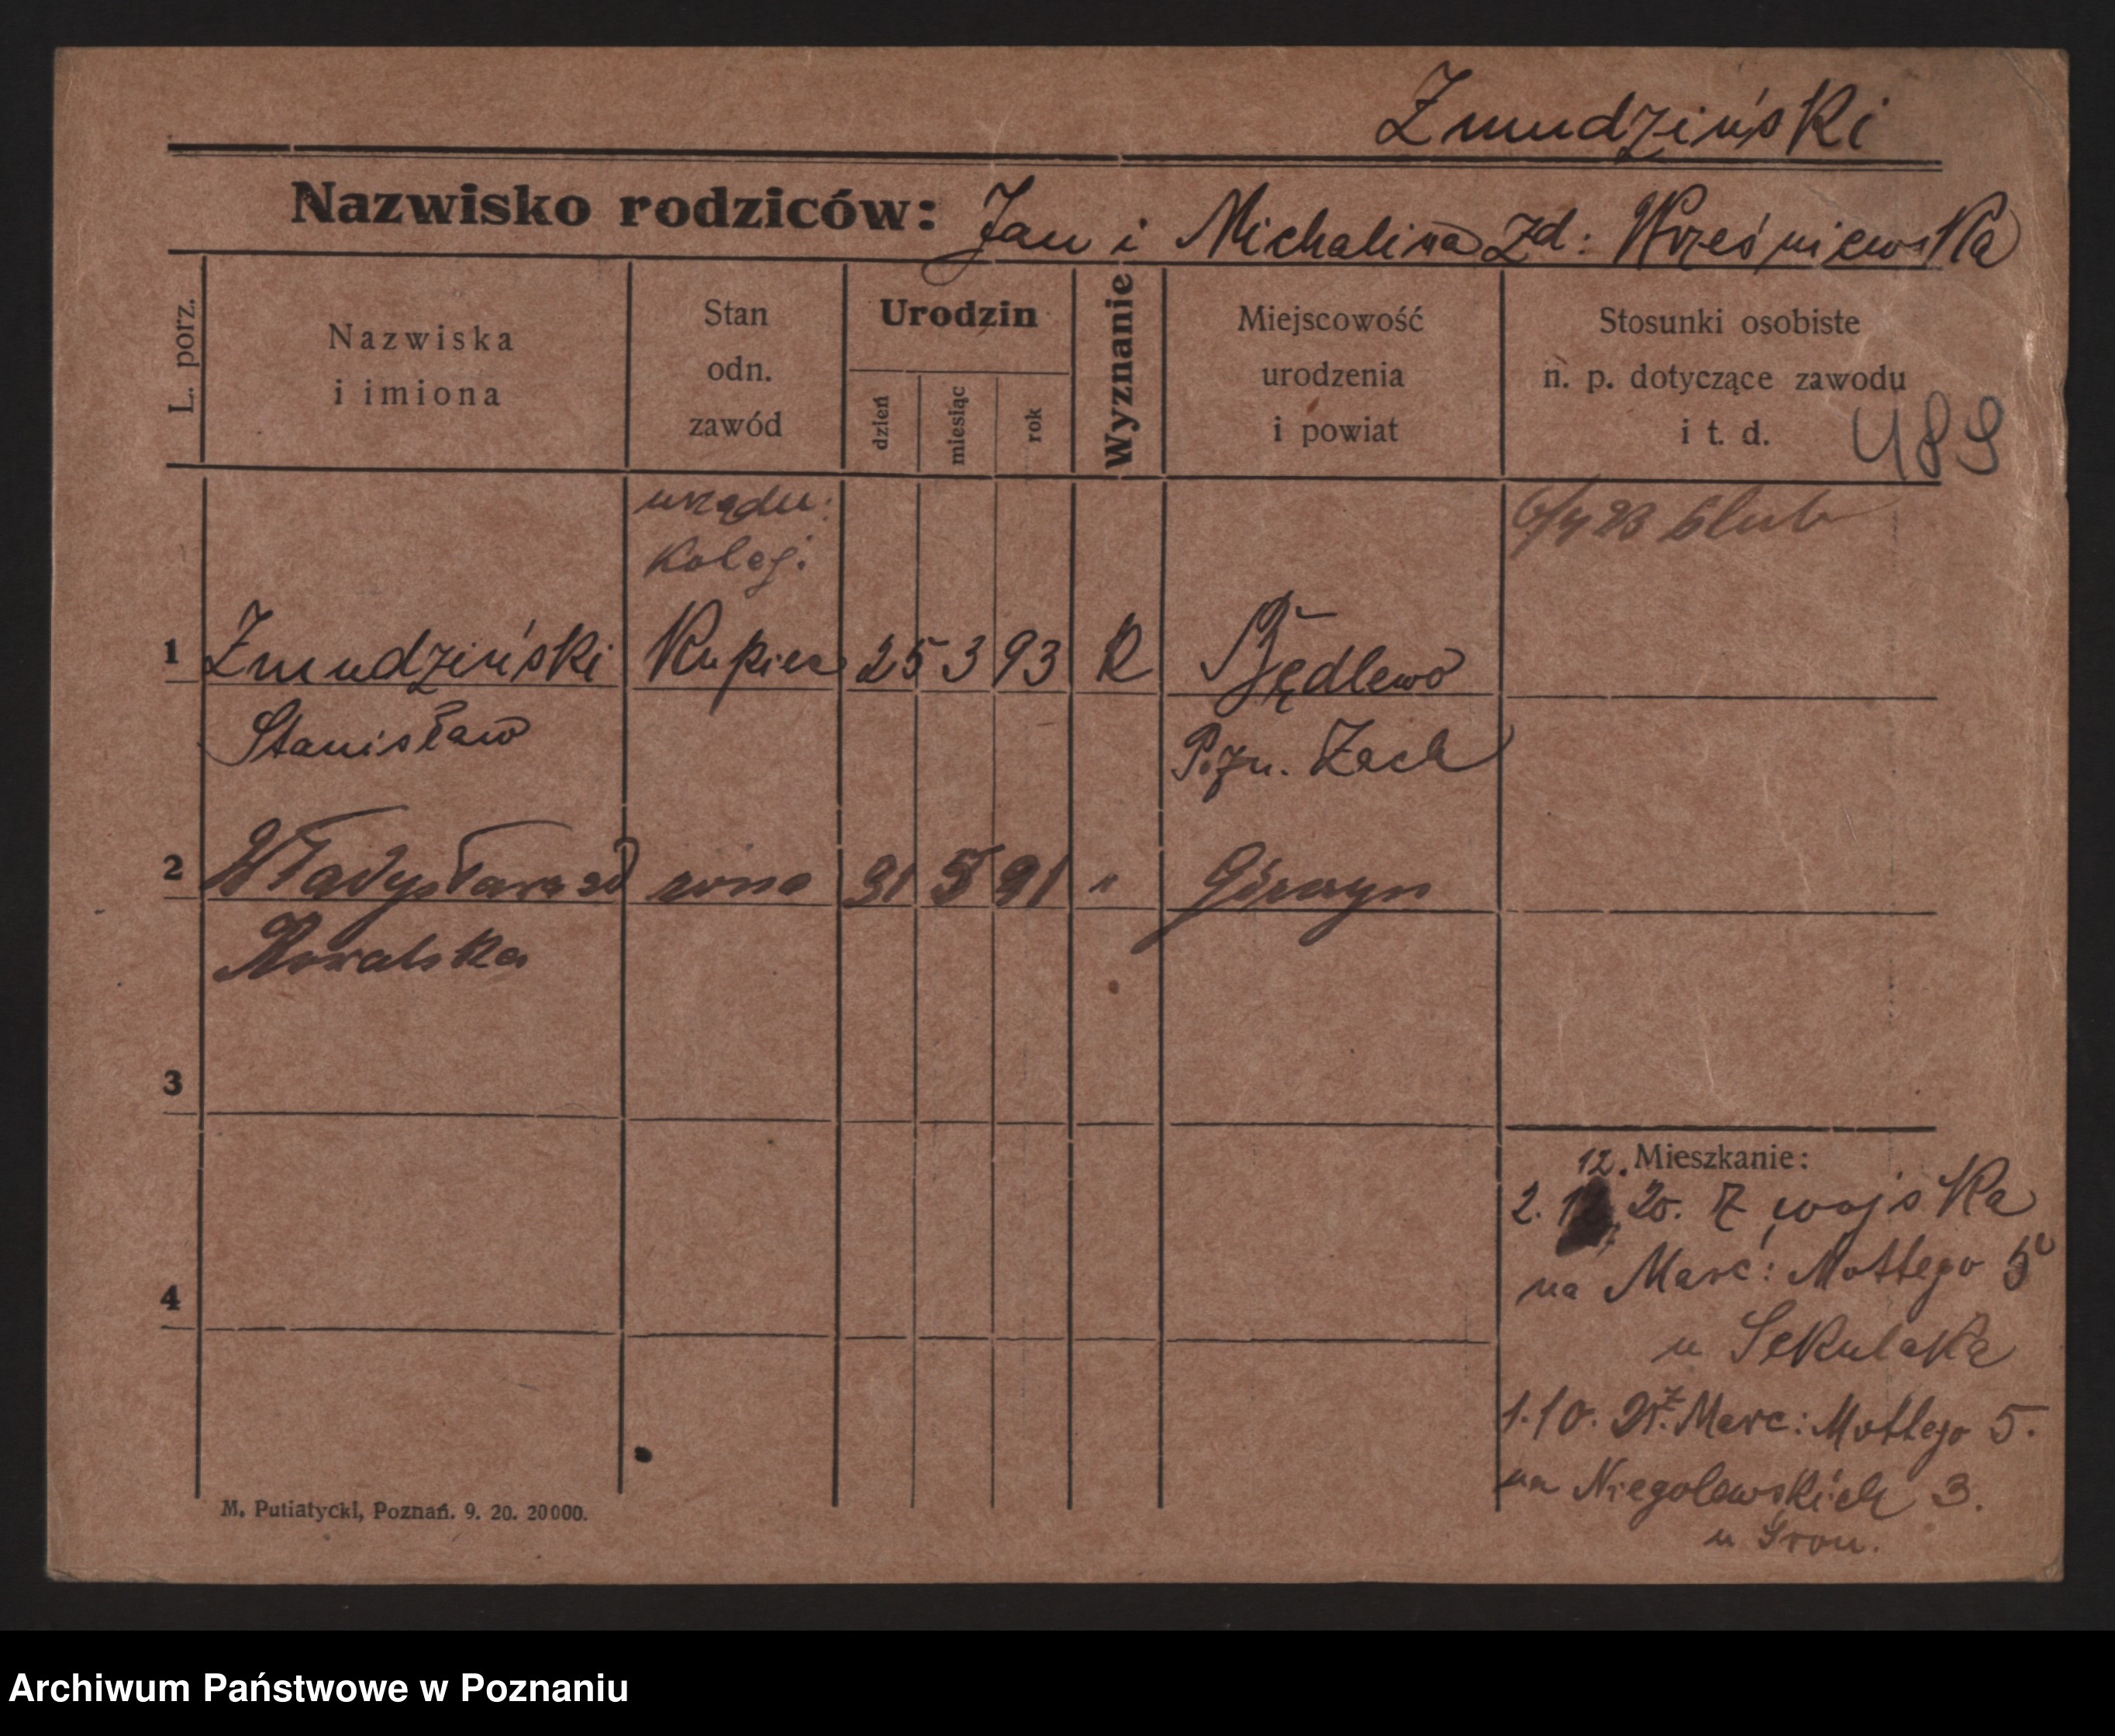 Żmudziński
Nazwisko rodziców: Jan i Michalina zd: Wrześniewska
L. porz.
Nazwiska
i imiona
Stan
odn.
zawód
Urodzin
dzień
miesiąc
rok
Wyznanie
Miejscowość
urodzenia
i powiat
Stosunki osobiste
n. p. dotyczące zawodu
i t. d.
489
urzędn:
kolej.
23 ślub
1 Żmudziński Kupiec 25 3 93 R Będlewo
Stanisław Pozn. Zach
2 Władysława zd żona 31 5 91 " Górczyn
Kowalska
3
4
Mieszkanie:
12.
2. 20. Z wojska
na Marc: Mottego 5
u Sekulaka
1.10. 21. z Marc: Mottego 5.
na Niegolewskich 3.
M. Putiatycki, Poznań. 9. 20. 20000.
Archiwum Państwowe w Poznaniu